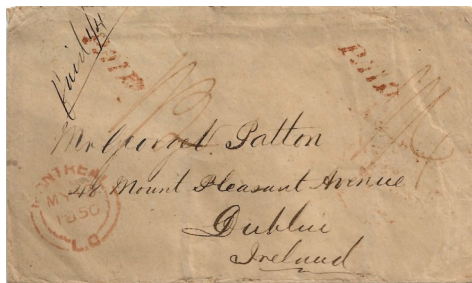 Paid 1/4
PAID
PAID 1/4
Mr George Patton
48 Mount Pleasant Avenue
Dublin
Ireland
MONTREAL
MY
1850
L.C